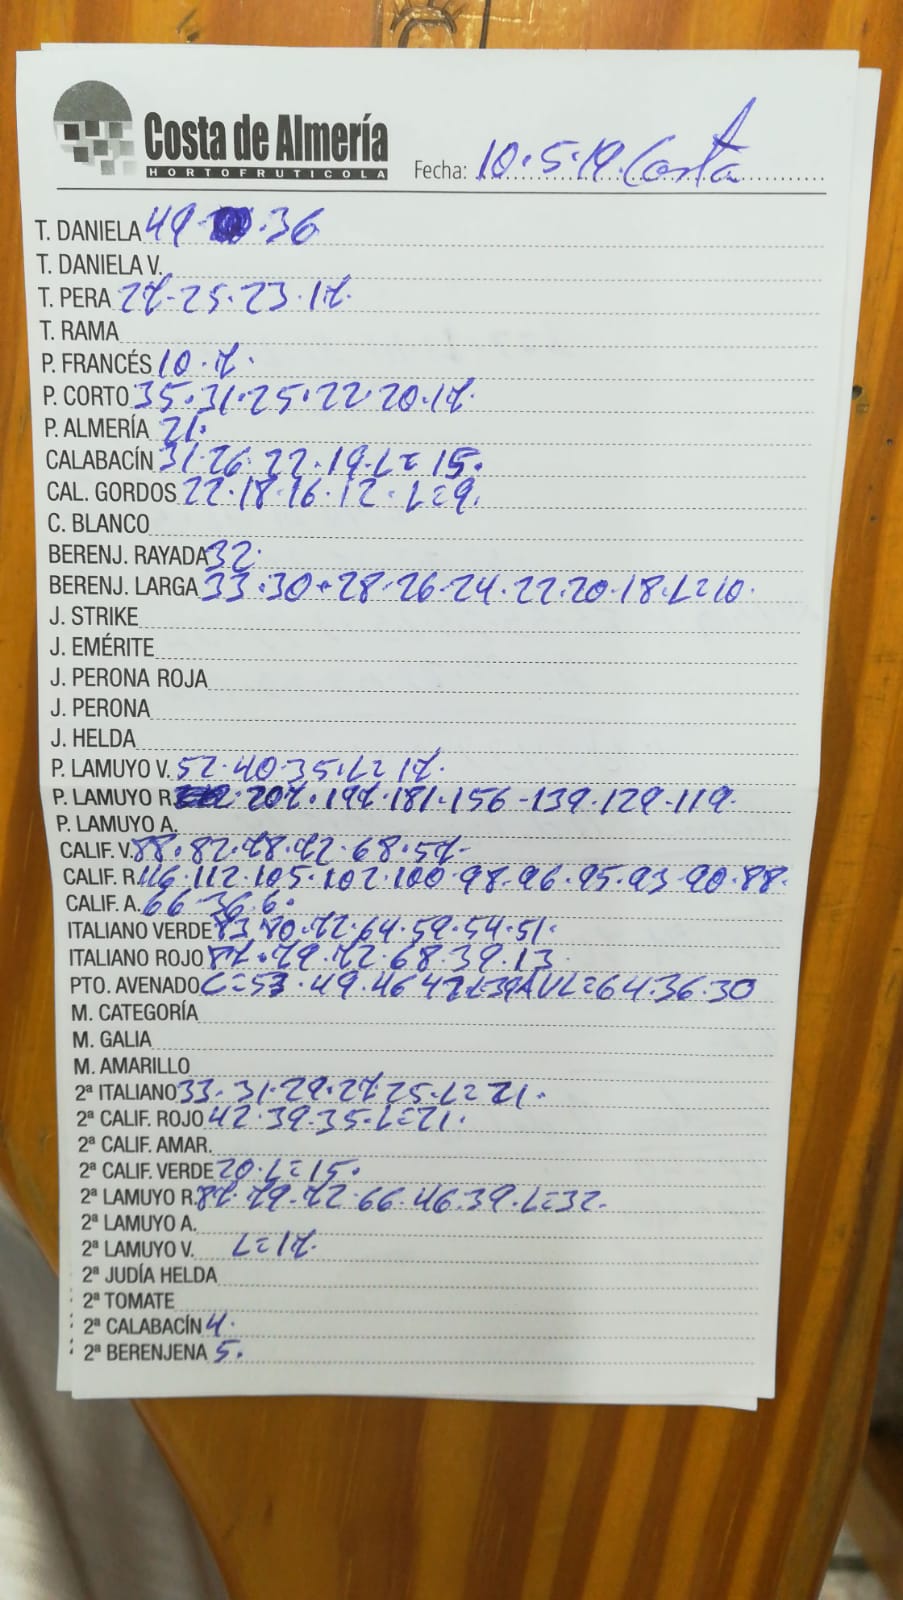 Costa de Almería
HORTOFRUTICOLA
Fecha: 10.5.19. Costa
T. DANIELA 49 - 36
T. DANIELA V.
T. PERA 27-25.23.17.
T. RAMA
P. FRANCÉS 10.7.
P. CORTO 35.31.25.22.20.17.
P. ALMERÍA 21.
CALABACÍN 31.26.22.19.L=15.
CAL. GORDOS 22.18.16.12.L=9.
C. BLANCO
BERENJ. RAYADA 32.
BERENJ. LARGA 33.30.28.26.24.22.20.18.L=10.
J. STRIKE
J. EMÉRITE
J. PERONA ROJA
J. PERONA
J. HELDA
P. LAMUYO V. 52.40.35.L=17.
P. LAMUYO R. 207.197.181.156-139.129-119.
P. LAMUYO A.
CALIF. V. 88.82.78.72.68.57-
CALIF. R. 116.112.105.102.100.98.96.95.93.90.88.
CALIF. A. 66.36.6.
ITALIANO VERDE 83.80.72.64.59.54.51.
ITALIANO ROJO 87.79.72.68.39.13
PTO. AVENADO C=53.49.46 42 L=39 AVL=64.36.30
M. CATEGORÍA
M. GALIA
M. AMARILLO
2ª ITALIANO 33.31.29.27.25.L=21.
2ª CALIF. ROJO 42.39.35.L=21.
2ª CALIF. AMAR.
2ª CALIF. VERDE 20.L=15.
2ª LAMUYO R. 87.79.72.66.46.39.L=32-
2ª LAMUYO A.
2ª LAMUYO V. L=17.
2ª JUDÍA HELDA
2ª TOMATE
2ª CALABACÍN 4.
2ª BERENJENA 5.